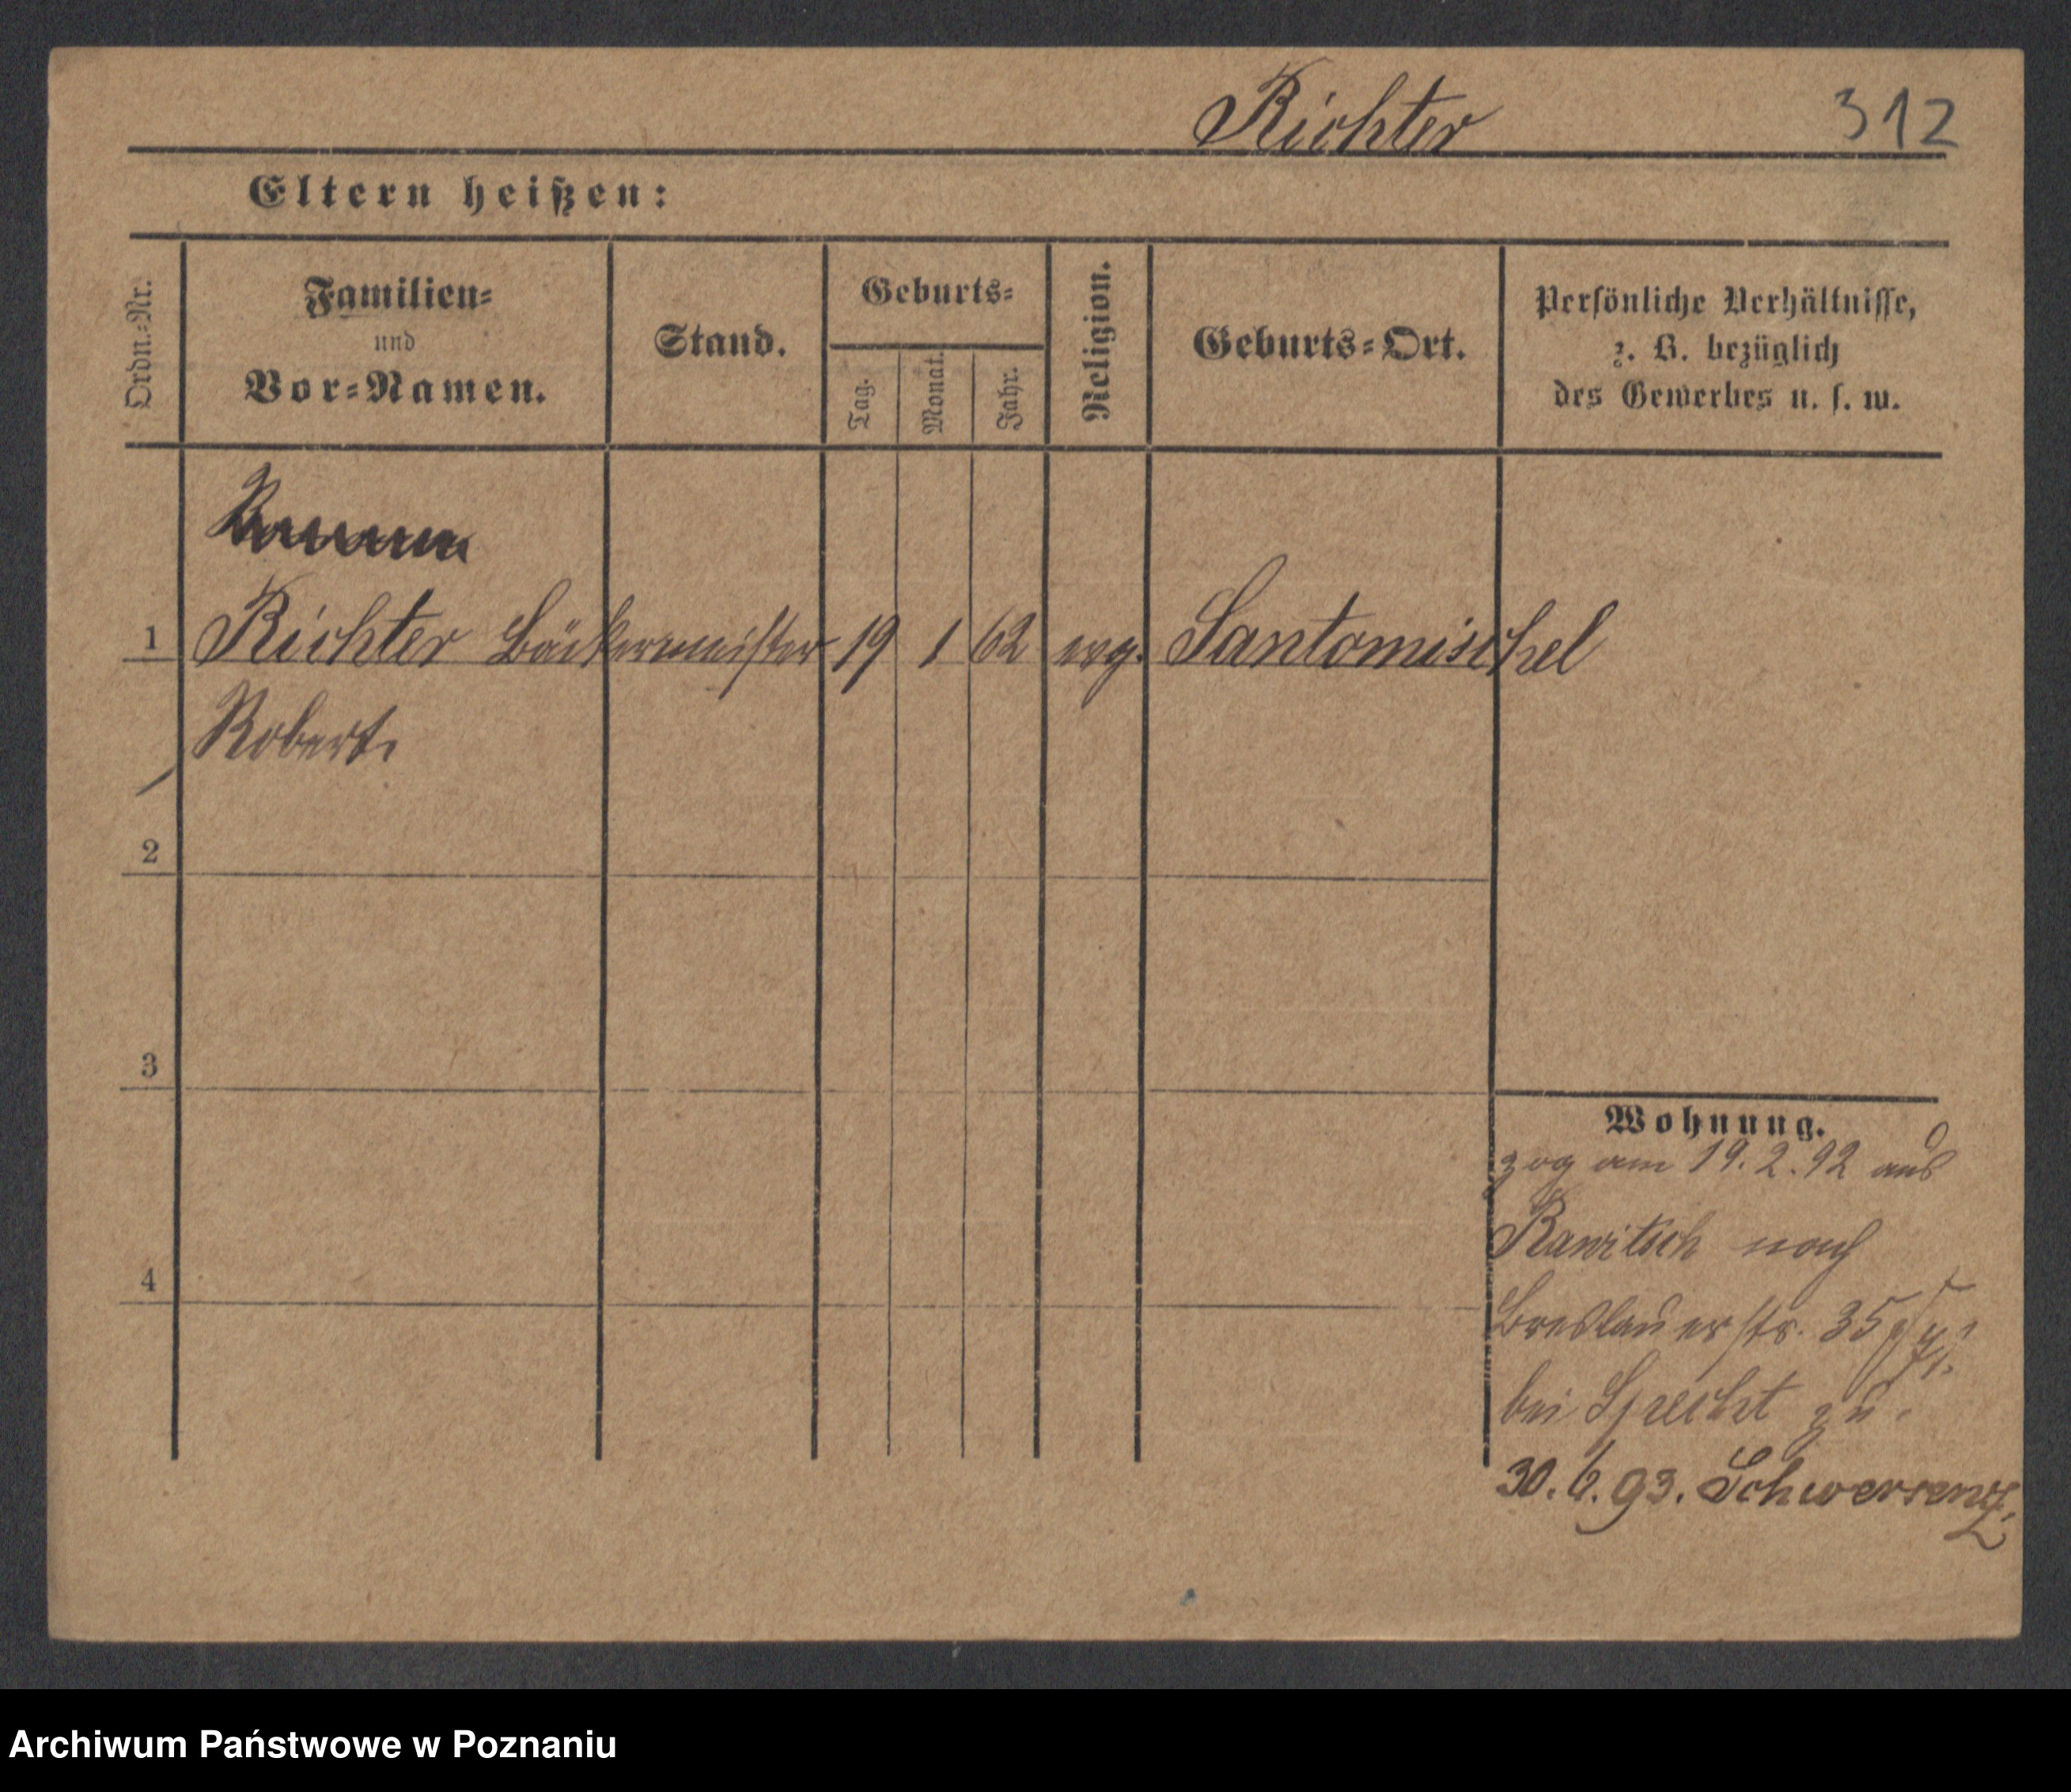 Richter 312
Eltern heißen:
Ordn.-Nr.
Familien-
und
Vor-Namen.
Stand.
Geburts-
Tag.
Monat.
Jahr.
Religion.
Geburts-Ort.
Persönliche Verhältnisse,
z. B. bezüglich
des Gewerbes u. s. w.
1 Richter Bäckermeister 19 1 62 evg. Santomischel
Robert.
2
3
4
Wohnung.
zog am 19.2.92 aus
Rawitsch nach
Breslauerstr. 35
bei Specht zu.
30.6.93. Schwersenz.
Archiwum Państwowe w Poznaniu